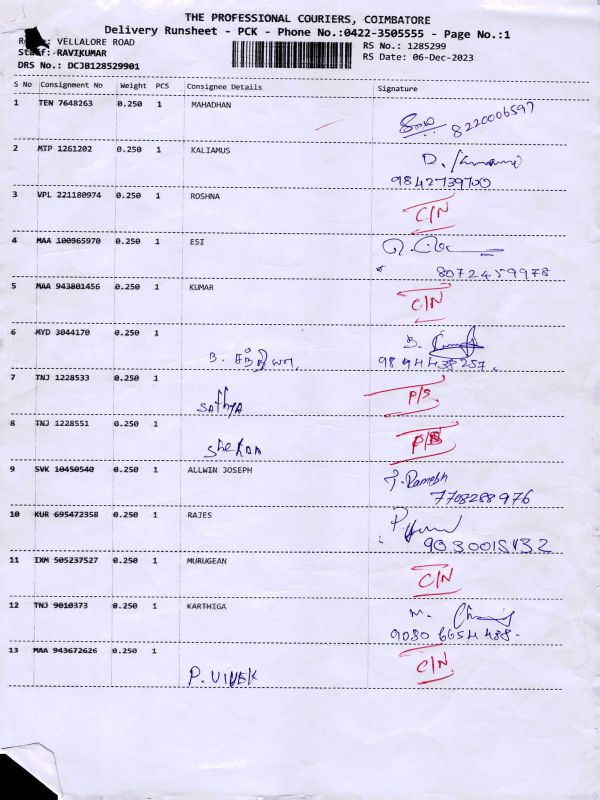 THE PROFESSIONAL COURIERS, COIMBATORE
Delivery Runsheet - PCK - Phone No.:0422-3505555 - Page No.:1
VELLALORE ROAD
RS No.: 1285299
Staff: RAVIKUMAR
RS Date: 06-Dec-2023
DRS No.: DCJB128529901
S No Consignment No Weight PCS Consignee Details Signature
1 TEN 7648263 0.250 1 MAHADHAN
8220006597
2 MTP 1261202 0.250 1 KALIAMUS
D.
9842739700
3 VPL 221180974 0.250 1 ROSHNA
C/N
4 MAA 100965970 0.250 1 ESI
8072459978
5 MAA 943801456 0.250 1 KUMAR
C/N
6 MYD 3044170 0.250 1
B.
7 TNJ 1228533 0.250 1
P/S
SATHYA
8 TNJ 1228551 0.250 1
P/S
9 SVK 10450540 0.250 1 ALLWIN JOSEPH
Ramesh
7708288976
10 KUR 695472358 0.250 1 RAJES
11 IXM 505237527 0.250 1 MURUGEAN
C/N
12 TNJ 9010373 0.250 1 KARTHIGA
M.
9080 6654 488-
13 MAA 943672626 0.250 1
C/N
P. VIVEK